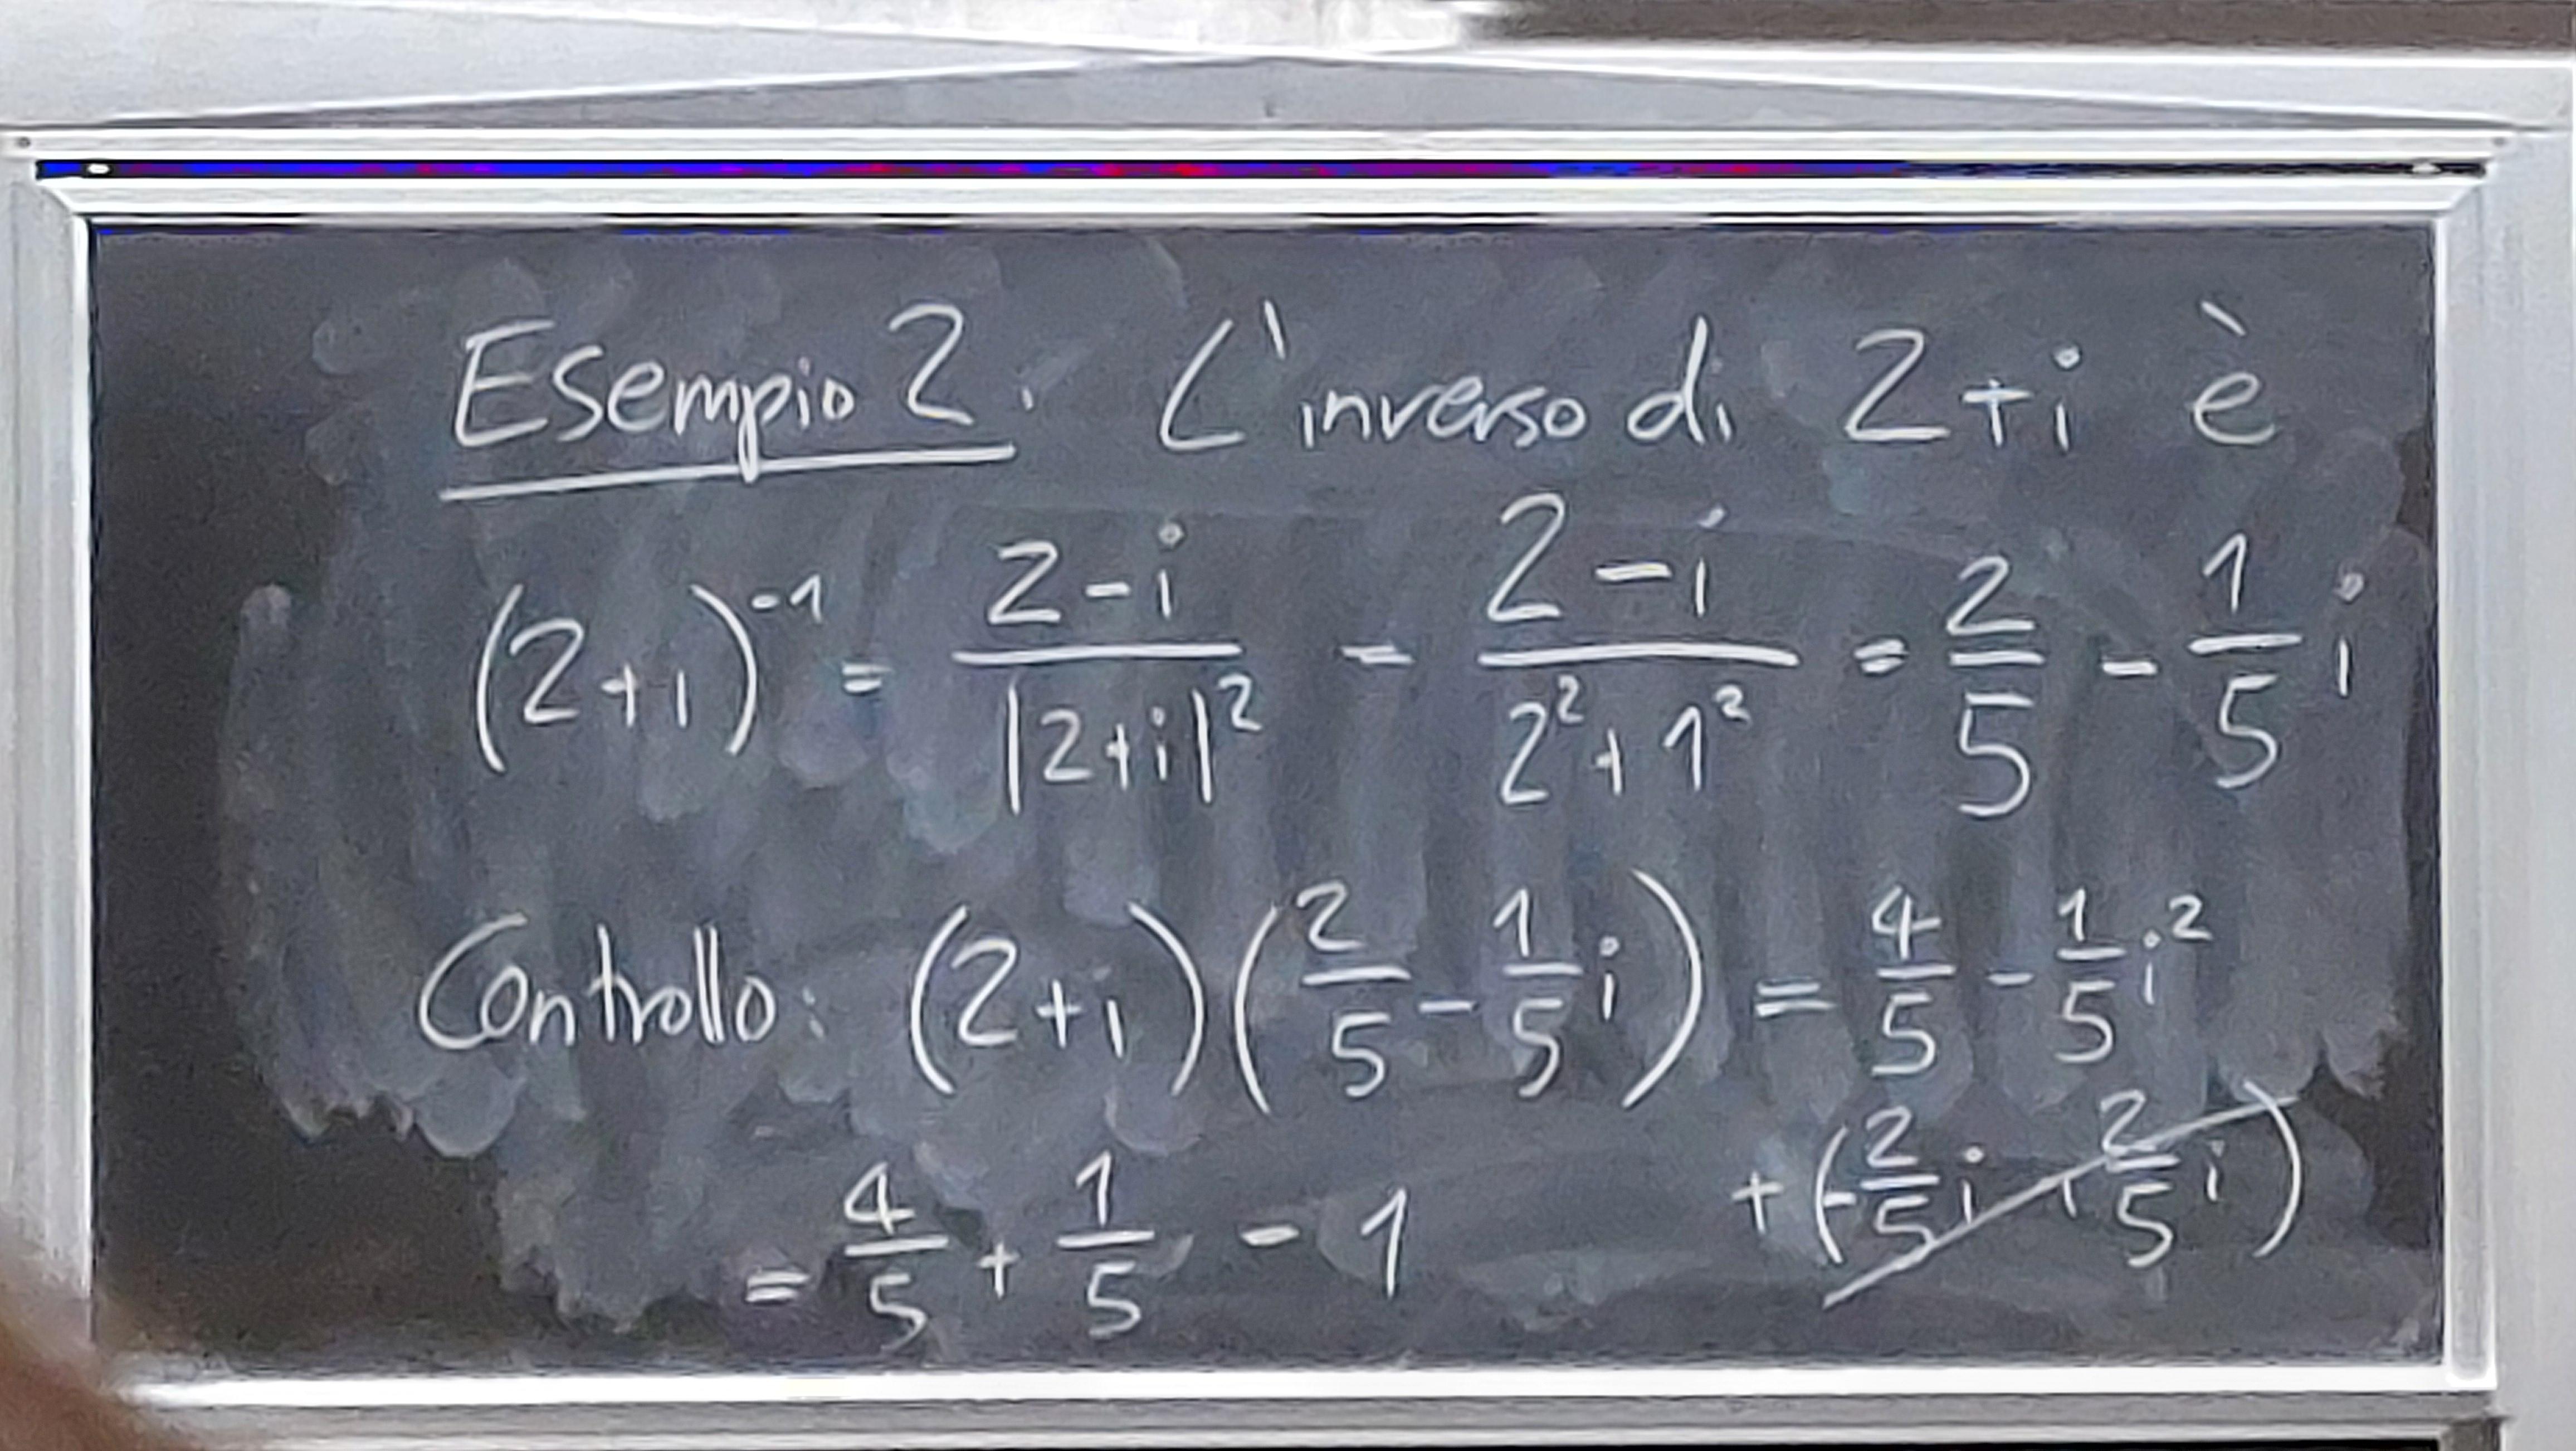 Esempio 2. L'inverso di 2+i è
(2+i)⁻¹ = (2-i)/|2+i|² = (2-i)/(2²+1²) = 2/5 - 1/5 i
Controllo: (2+i)(2/5 - 1/5 i) = 4/5 - 1/5 i²
+ (-2/5 i + 2/5 i)
= 4/5 + 1/5 = 1